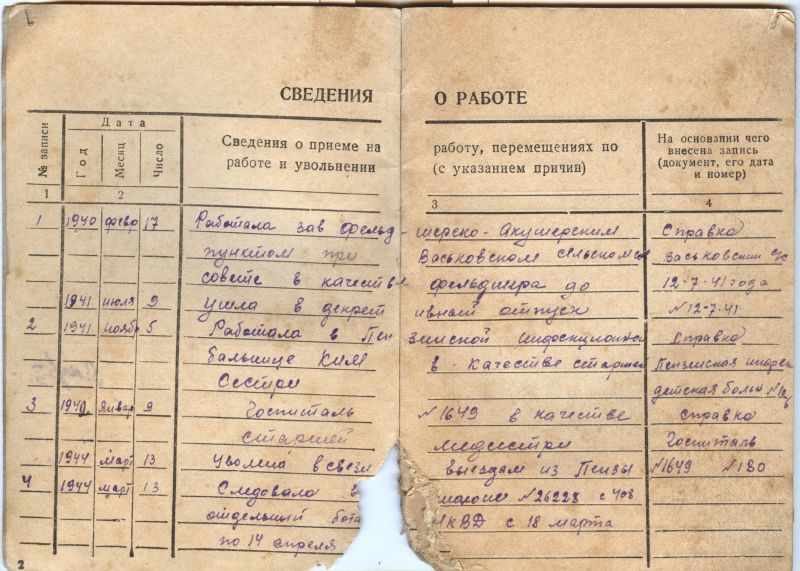 СВЕДЕНИЯ О РАБОТЕ
№ записи
Дата
Год
Месяц
Число
Сведения о приеме на работу, перемещениях по
работе и увольнении (с указанием причин)
На основании чего
внесена запись
(документ, его дата
и номер)
1 2 3 4
1 1940 февр 17 Работала зав фельд-шерско-Акушерским Справка
пунктом при Васьковском сельском Васьковский с/с
совете в качестве фельдшера до 12-7-41 года
1941 июля 9 ушла в декрет ивный отпуск №12-7-41
2 1941 ноябр 5 Работала в Пен зинской Инфекционной Справка
больнице Ким в качестве старшей Пензенская
Сестри детская больн
3 1942 январ 9 Госпиталь №1649 в качестве справка
старшей медсестри Госпиталь
1944 март 13 уволена в связи выездам из Пензы №1649 №180
4 1944 март 13 Следовала в №26228 с 408
отдельный бота НКВД с 18 марта
по 14 апреля
2